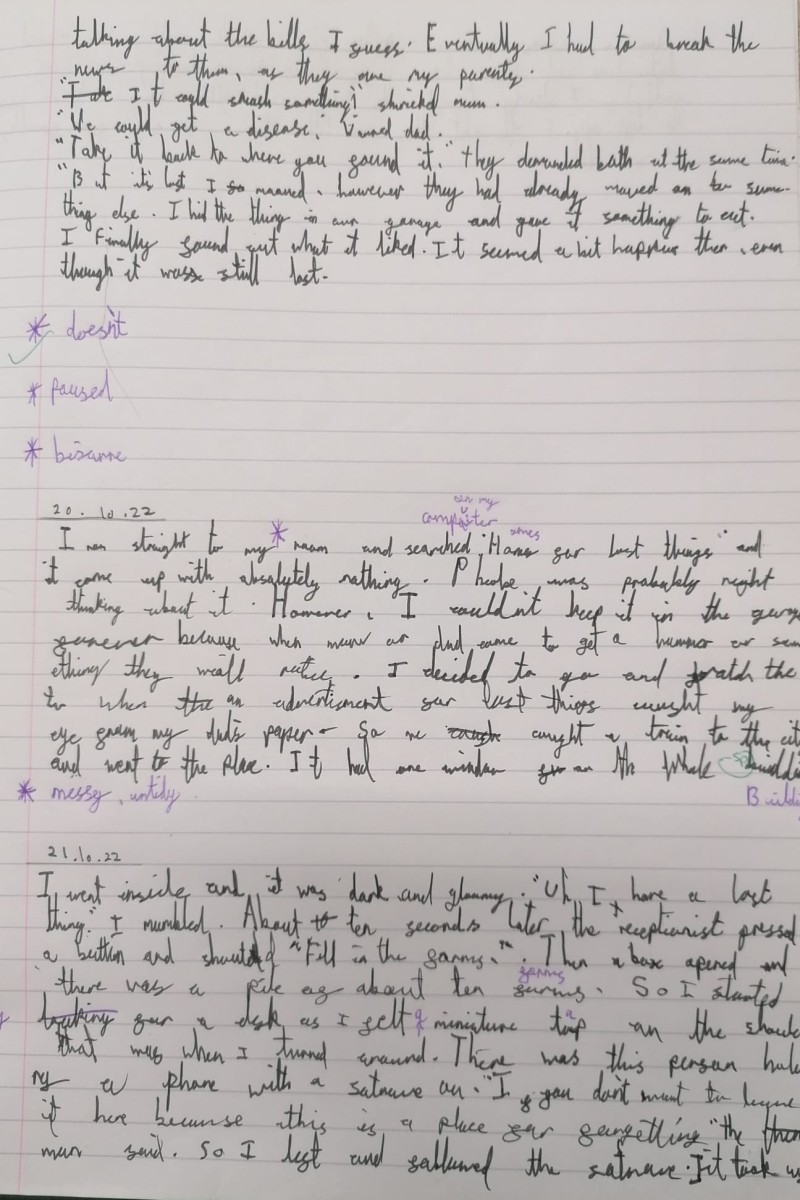 talking about the bills I guess. Eventually I had to break the
news to them, as they are my parents.
"It could smash something!" shrieked mum.
"We could get a disease," dad.
"Take it back to where you found it." they demanded both at the same time.
"But it's lost I moaned, however they had already moved on to some-
thing else. I hid the thing in our garage and gave it something to eat.
I Finally found out what it liked. It seemed a bit happier then, even
though it was still lost.
* doesn't
* Paused
* bizarre
20.10.22
on my
computer
I ran straight to my * room and searched "Homes for lost things" and
it came up with absolutely nothing. Phoebe was probably right
thinking about it. However, I couldn't keep it in the
forever because when mum or dad came to get a hammer or som
ething they would notice. I decided to go and the
to when an advertisment for lost things caught my
eye from my dad's paper. So we caught a train to the
and went to the place. It had one window on the whole
* messy, untidy
21.10.22
I went inside and it was dark and gloomy. "Uh, I have a lost
thing." I mumbled. About ten seconds later, the receptionist pressed
a button and shouted "Fill in the forms." Then a box opened and
forms
there was a pile of about ten forms. So I started
looking for a desk as I felt a miniature tap on the
that was when I turned around. There was this person
a phone with a on. "If you don't want to
it here because this is a place for forgetting" the
man said. So I left and followed the . It took